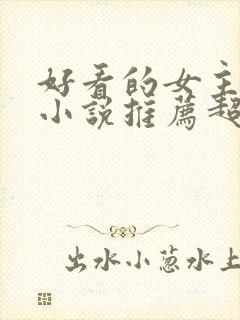 好看的女主
小说推薦超
出水小葱水上